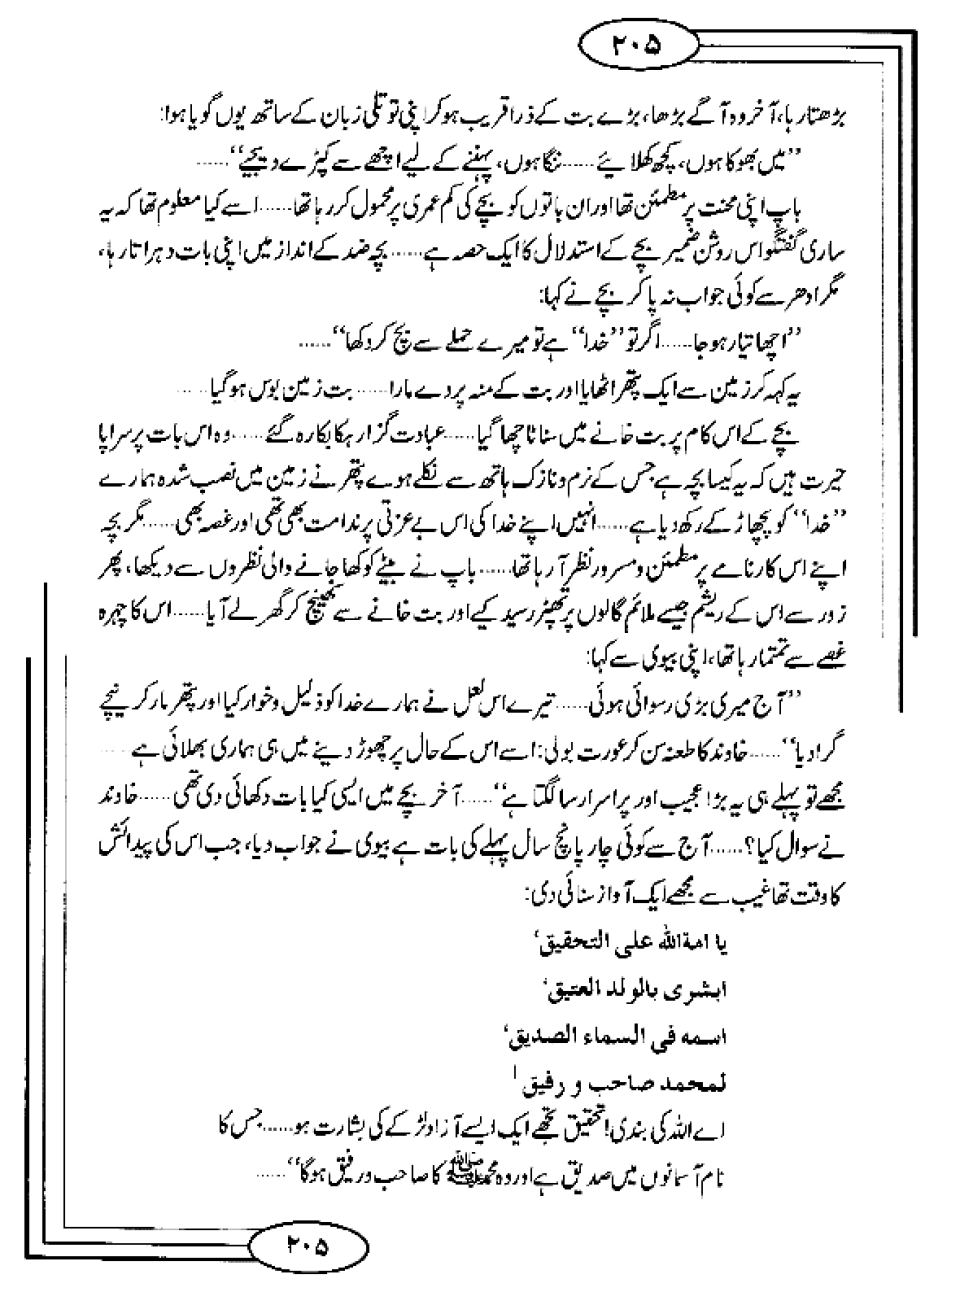 ۲۰۵
بڑھتا رہا، آخر وہ آگے بڑھا، بڑے بت کے ذرا قریب ہو کر اپنی توتلی زبان کے ساتھ یوں گویا ہوا:
’’میں بھوکا ہوں، کچھ کھلائیے......ننگا ہوں، پہننے کے لیے اچھے سے کپڑے دیجیے‘‘......
باپ اپنی محنت پر مطمئن تھا اور ان باتوں کو بچے کی کم عمری پر محمول کر رہا تھا......اسے کیا معلوم تھا کہ یہ
ساری گفتگو اس روشن ضمیر بچے کے استدلال کا ایک حصہ ہے......بچہ ضد کے انداز میں اپنی بات دہراتا رہا،
مگر ادھر سے کوئی جواب نہ پا کر بچے نے کہا:
’’اچھا تیار ہو جا......اگر تو ’’خدا‘‘ ہے تو میرے حملے سے بچ کر دکھا‘‘......
یہ کہہ کر زمین سے ایک پتھر اٹھایا اور بت کے منہ پر دے مارا......بت زمین بوس ہو گیا......
بچے کے اس کام پر بت خانے میں سناٹا چھا گیا......عبادت گزار ہکا بکا رہ گئے......وہ اس بات پر سراپا
حیرت ہیں کہ یہ کیسا بچہ ہے جس کے نرم و نازک ہاتھ سے نکلے ہوے پتھر نے زمین میں نصب شدہ ہمارے
’’خدا‘‘ کو پچھاڑ کے رکھ دیا ہے......انہیں اپنے خدا کی اس بے عزتی پر ندامت بھی تھی اور غصہ بھی......مگر بچہ
اپنے اس کارنامے پر مطمئن و مسرور نظر آ رہا تھا......باپ نے بیٹے کو کھا جانے والی نظروں سے دیکھا، پھر
زور سے اس کے ریشم جیسے ملائم گالوں پر تھپڑ رسید کیے اور بت خانے سے کھینچ کر گھر لے آیا......اس کا چہرہ
غصے سے تمتما رہا تھا، اپنی بیوی سے کہا:
’’آج میری بڑی رسوائی ہوئی......تیرے اس لعل نے ہمارے خدا کو ذلیل و خوار کیا اور پتھر مار کر نیچے
گرا دیا‘‘......خاوند کا طعنہ سن کر عورت بولی: اسے اس کے حال پر چھوڑ دینے میں ہی ہماری بھلائی ہے......
مجھے تو پہلے ہی یہ بڑا عجیب اور پراسرار سا لگتا ہے‘‘......آخر بچے میں ایسی کیا بات دکھائی دی تھی......خاوند
نے سوال کیا؟......آج سے کوئی چار پانچ سال پہلے کی بات ہے بیوی نے جواب دیا، جب اس کی پیدائش
کا وقت تھا غیب سے مجھے ایک آواز سنائی دی:
یا امة الله علی التحقیق‘
ابشری بالولد العتیق‘
اسمه فی السماء الصدیق‘
لمحمد صاحب و رفیق ۱
اے اللہ کی بندی! تحقیق تجھے ایک ایسے آزاد لڑکے کی بشارت ہو......جس کا
نام آسمانوں میں صدیق ہے اور وہ محمد ﷺ کا صاحب و رفیق ہوگا‘‘......
۲۰۵